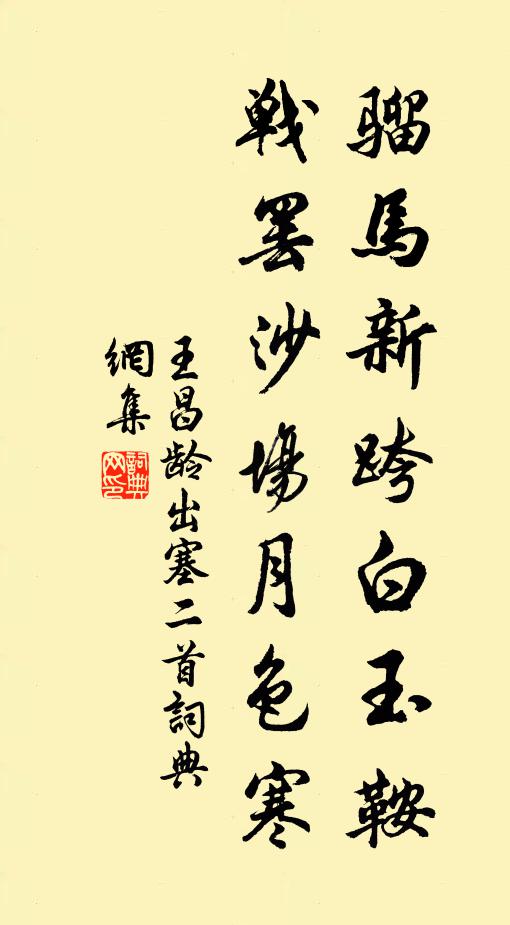 騮馬新跨白玉鞍
戰罷沙場月色寒
王昌龄出塞二首詞典
網集
詞典
网印